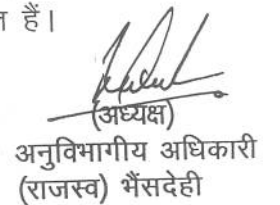 हैं।
(अध्यक्ष)
अनुविभागीय अधिकारी
(राजस्व) भैंसदेही